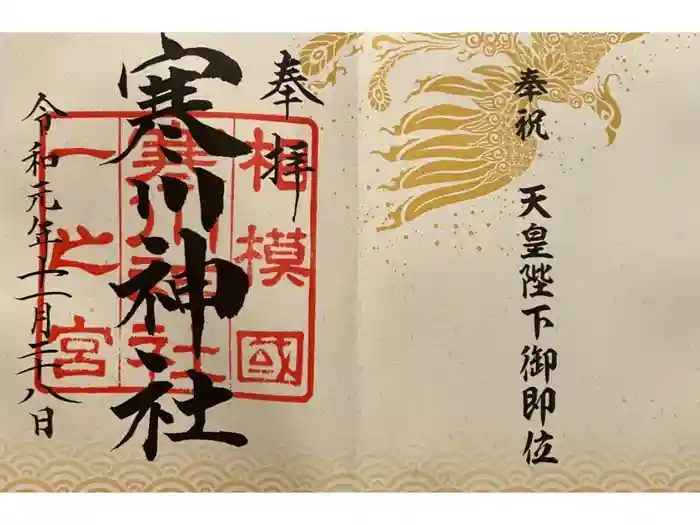 奉祝 天皇陛下御即位
奉拝
寒川神社
令和元年十一月二十八日
相模國
寒川神社
一之宮